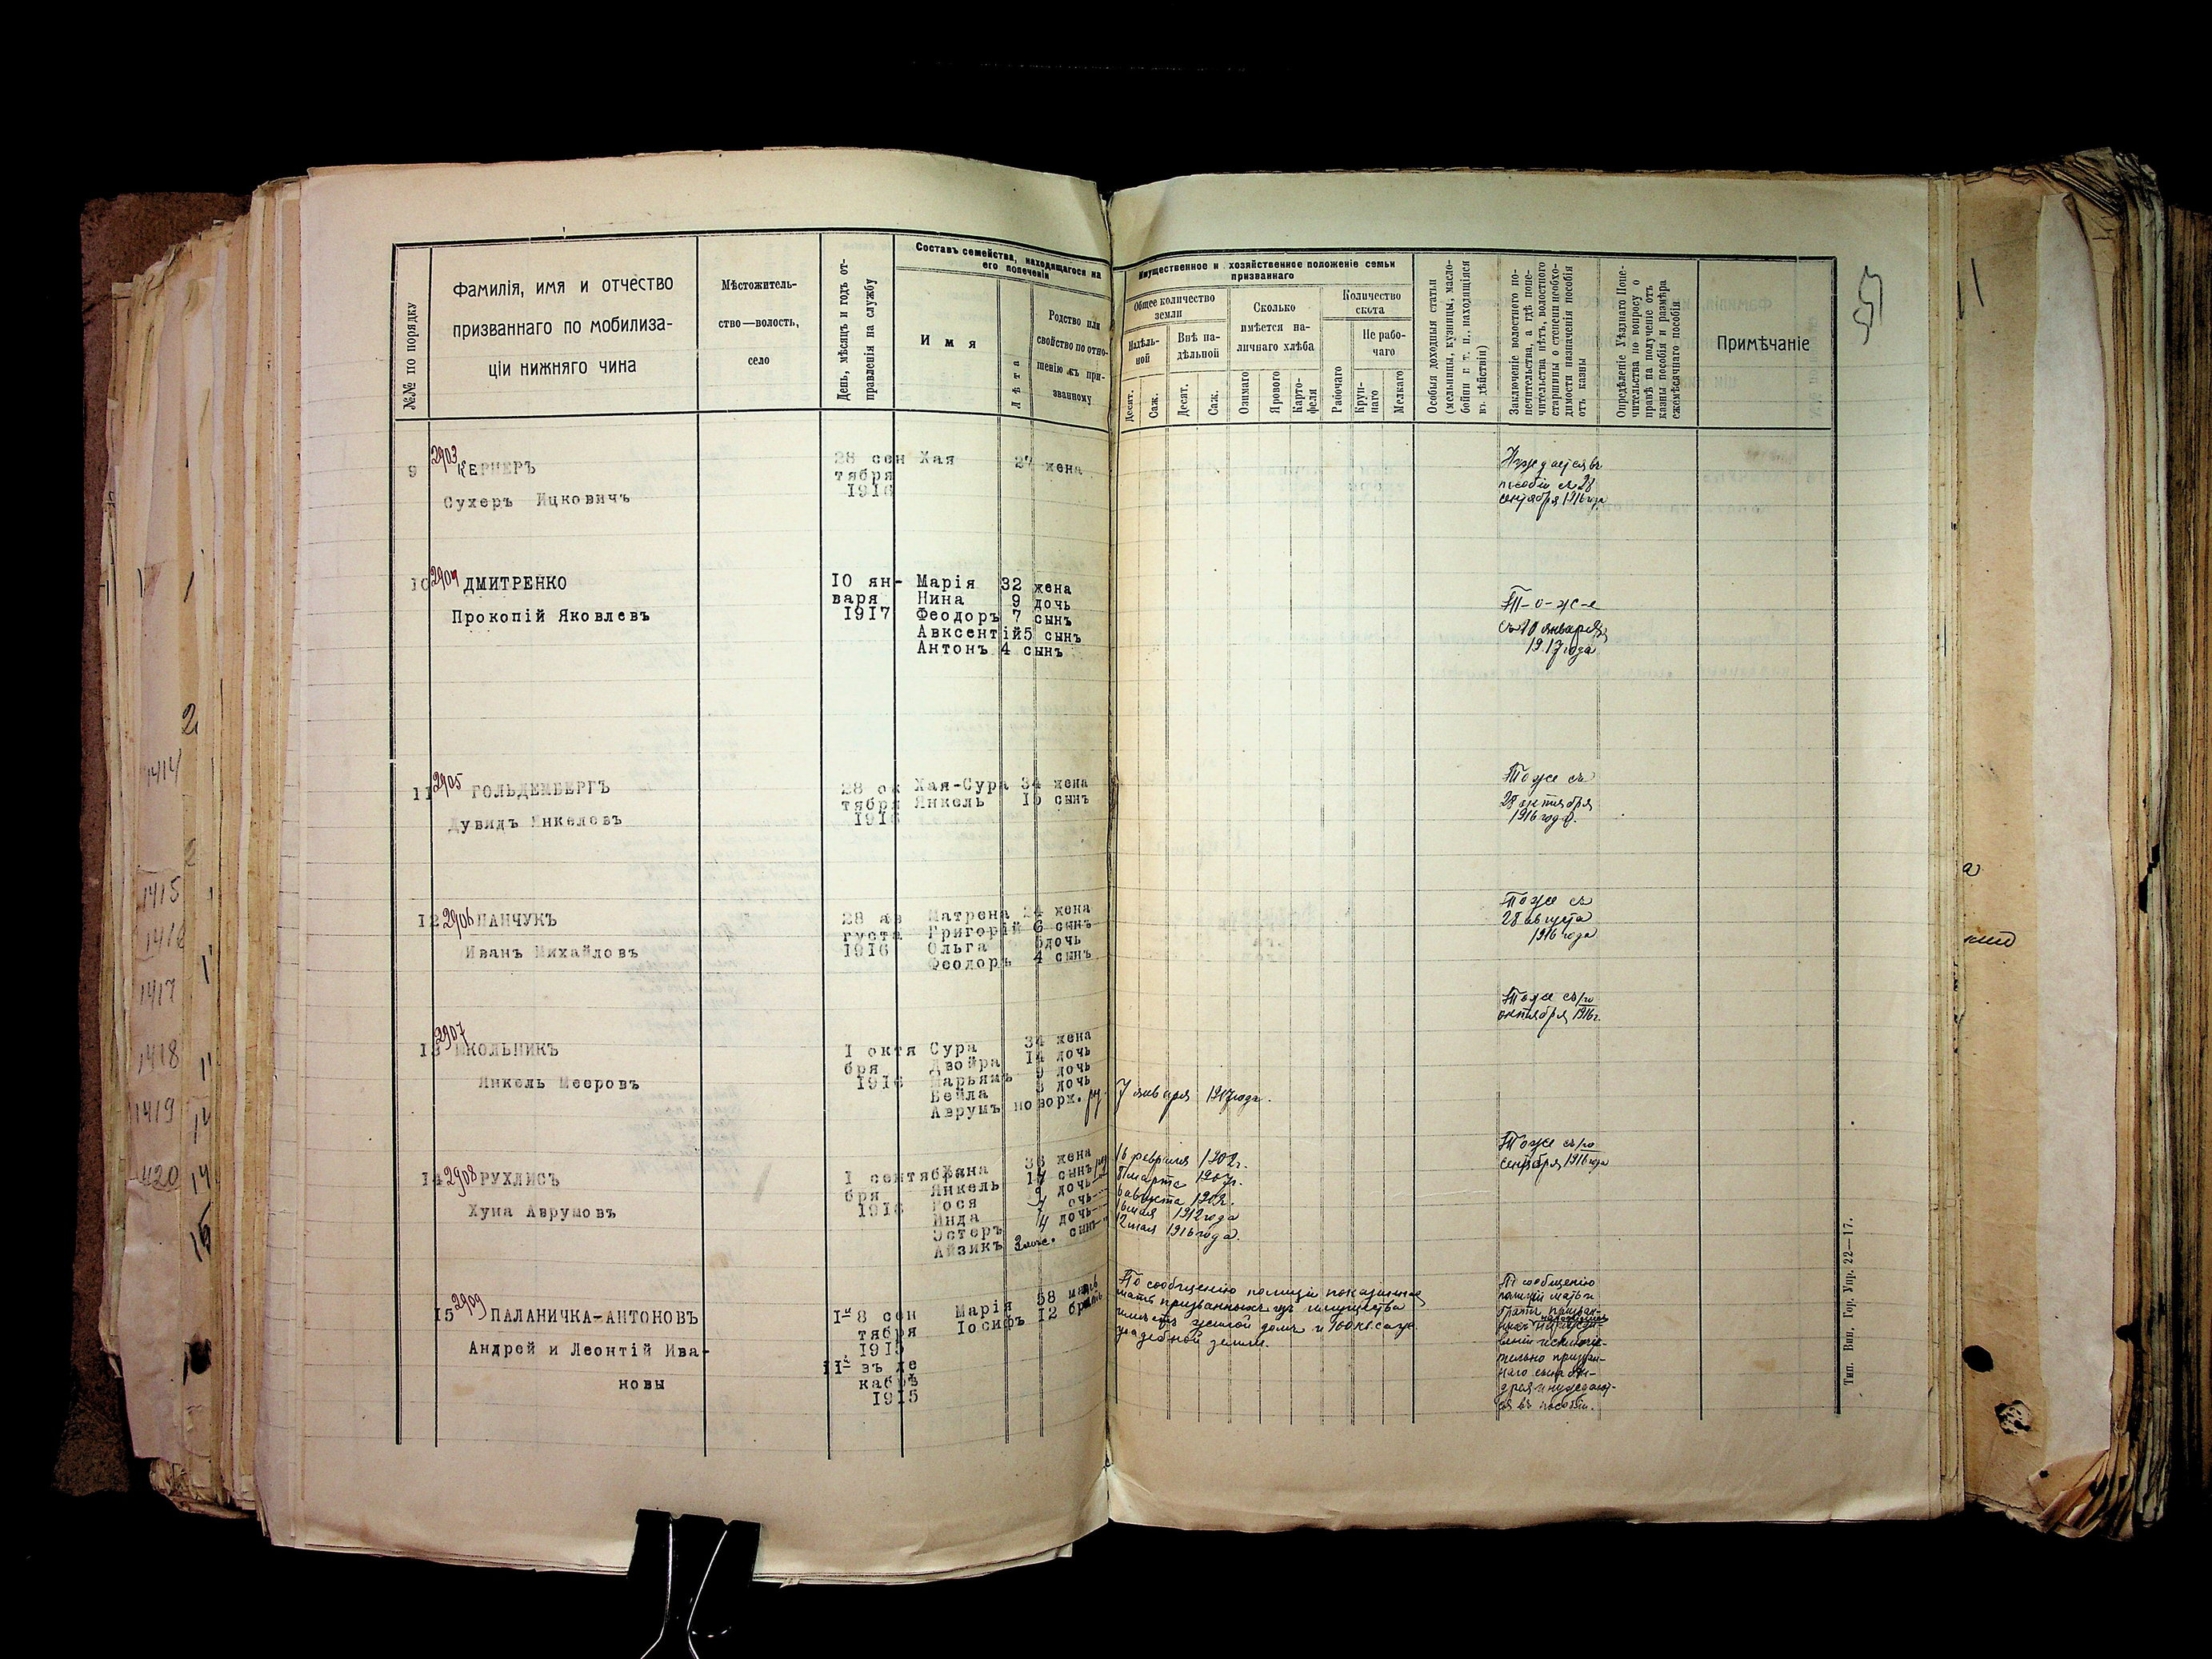 №№ по порядку
Фамилія, имя и отчество
призваннаго по мобилиза-
ціи нижняго чина
Мѣстожитель-
ство—волость,
село
День, мѣсяцъ и годъ от-
правленія на службу
Составъ семейства, находящагося на
его попеченіи
Имя
Лѣта
Родство или
свойство по отно-
шенію къ при-
званному
Имущественное и хозяйственное положеніе семьи
призваннаго
Общее количество
земли
Надѣль-
ной
Внѣ на-
дѣльной
Десят.
Саж.
Десят.
Саж.
Сколько
имѣется на-
личнаго хлѣба
Озимаго
Ярового
Карто-
феля
Количество
скота
Рабочаго
Не рабо-
чаго
Круп-
наго
Мелкаго
Особыя доходныя статьи
(мельницы, кузницы, масло-
бойни и т. п., находящіяся
въ дѣйствіи)
Заключеніе волостного по-
печительства, а гдѣ попе-
чительства нѣтъ, волостного
старшины о степени необхо-
димости назначенія пособія
отъ казны
Опредѣленіе Уѣзднаго Попе-
чительства по вопросу о
правѣ на полученіе отъ
казны пособія и размѣра
ежемѣсячнаго пособія
Примѣчаніе
9 2903 КЕРНЕРЪ
Сухеръ Ицковичъ
28 сен
тября
1916
Хая 27 жена
Нуждается въ
пособіи съ 28
сентября 1916 года
10 2904 ДМИТРЕНКО
Прокопій Яковлевъ
10 ян-
варя
1917
Марія 32 жена
Нина 9 дочь
Феодоръ 7 сынъ
Авксентій 5 сынъ
Антонъ 4 сынъ
Т-о-ж-е
съ 10 января
1917 года
11 2905 ГОЛЬДЕМБЕРГЪ
Дувидъ Янкелевъ
28 ок
тября
1916
Хая-Сура 34 жена
Янкель 15 сынъ
Тоже съ
28 октября
1916 года.
12 2906 ПАНЧУКЪ
Иванъ Михайловъ
28 ав
густа
1916
Матрена 24 жена
Григорій 6 сынъ
Ольга 5 дочь
Феодоръ 4 сынъ
Тоже съ
28 августа
1916 года
13 2907 ШКОЛЬНИКЪ
Янкель Мееровъ
1 октя
бря
1916
Сура 34 жена
Двойра 14 дочь
Марьямъ 9 дочь
Бейла 3 дочь
Аврумъ новорж. 7 января 1917 года.
Тоже съ 1го
октября 1916 г.
14 2908 РУХЛИСЪ
Хуна Аврумовъ
1 сентя
бря
1916
Жана 36 жена
Янкель 14 сынъ 16 февраля 1902 г.
Рося 9 дочь 8 марта 1907 г.
Инда 7 дочь 6 августа 1909 г.
Эстеръ 4 дочь 16 мая 1912 года
Айзикъ 3 мѣс. сынъ 12 мая 1916 года.
Тоже съ 1го
сентября 1916 года
15 2909 ПАЛАНИЧКА-АНТОНОВЪ
Андрей и Леонтій Ива-
новы
1й 8 сен
тября
1915
11й въ де
кабрѣ
1915
Марія 58 мать
Іосифъ 12 братъ
По сообщенію полиціи показанная
мать призванныхъ изъ имущества
имѣетъ жилой домъ и 100 кв. саж.
усадебной земли.
По сообщенію
полиціи мать и
братъ призван-
ныхъ
исключи-
тельно призван-
наго сына Ан-
дрея и нуждают-
ся въ пособіи.
Тип. Вин. Гор. Упр. 22—17.
1414
1415
1416
1417
1418
1419
1420